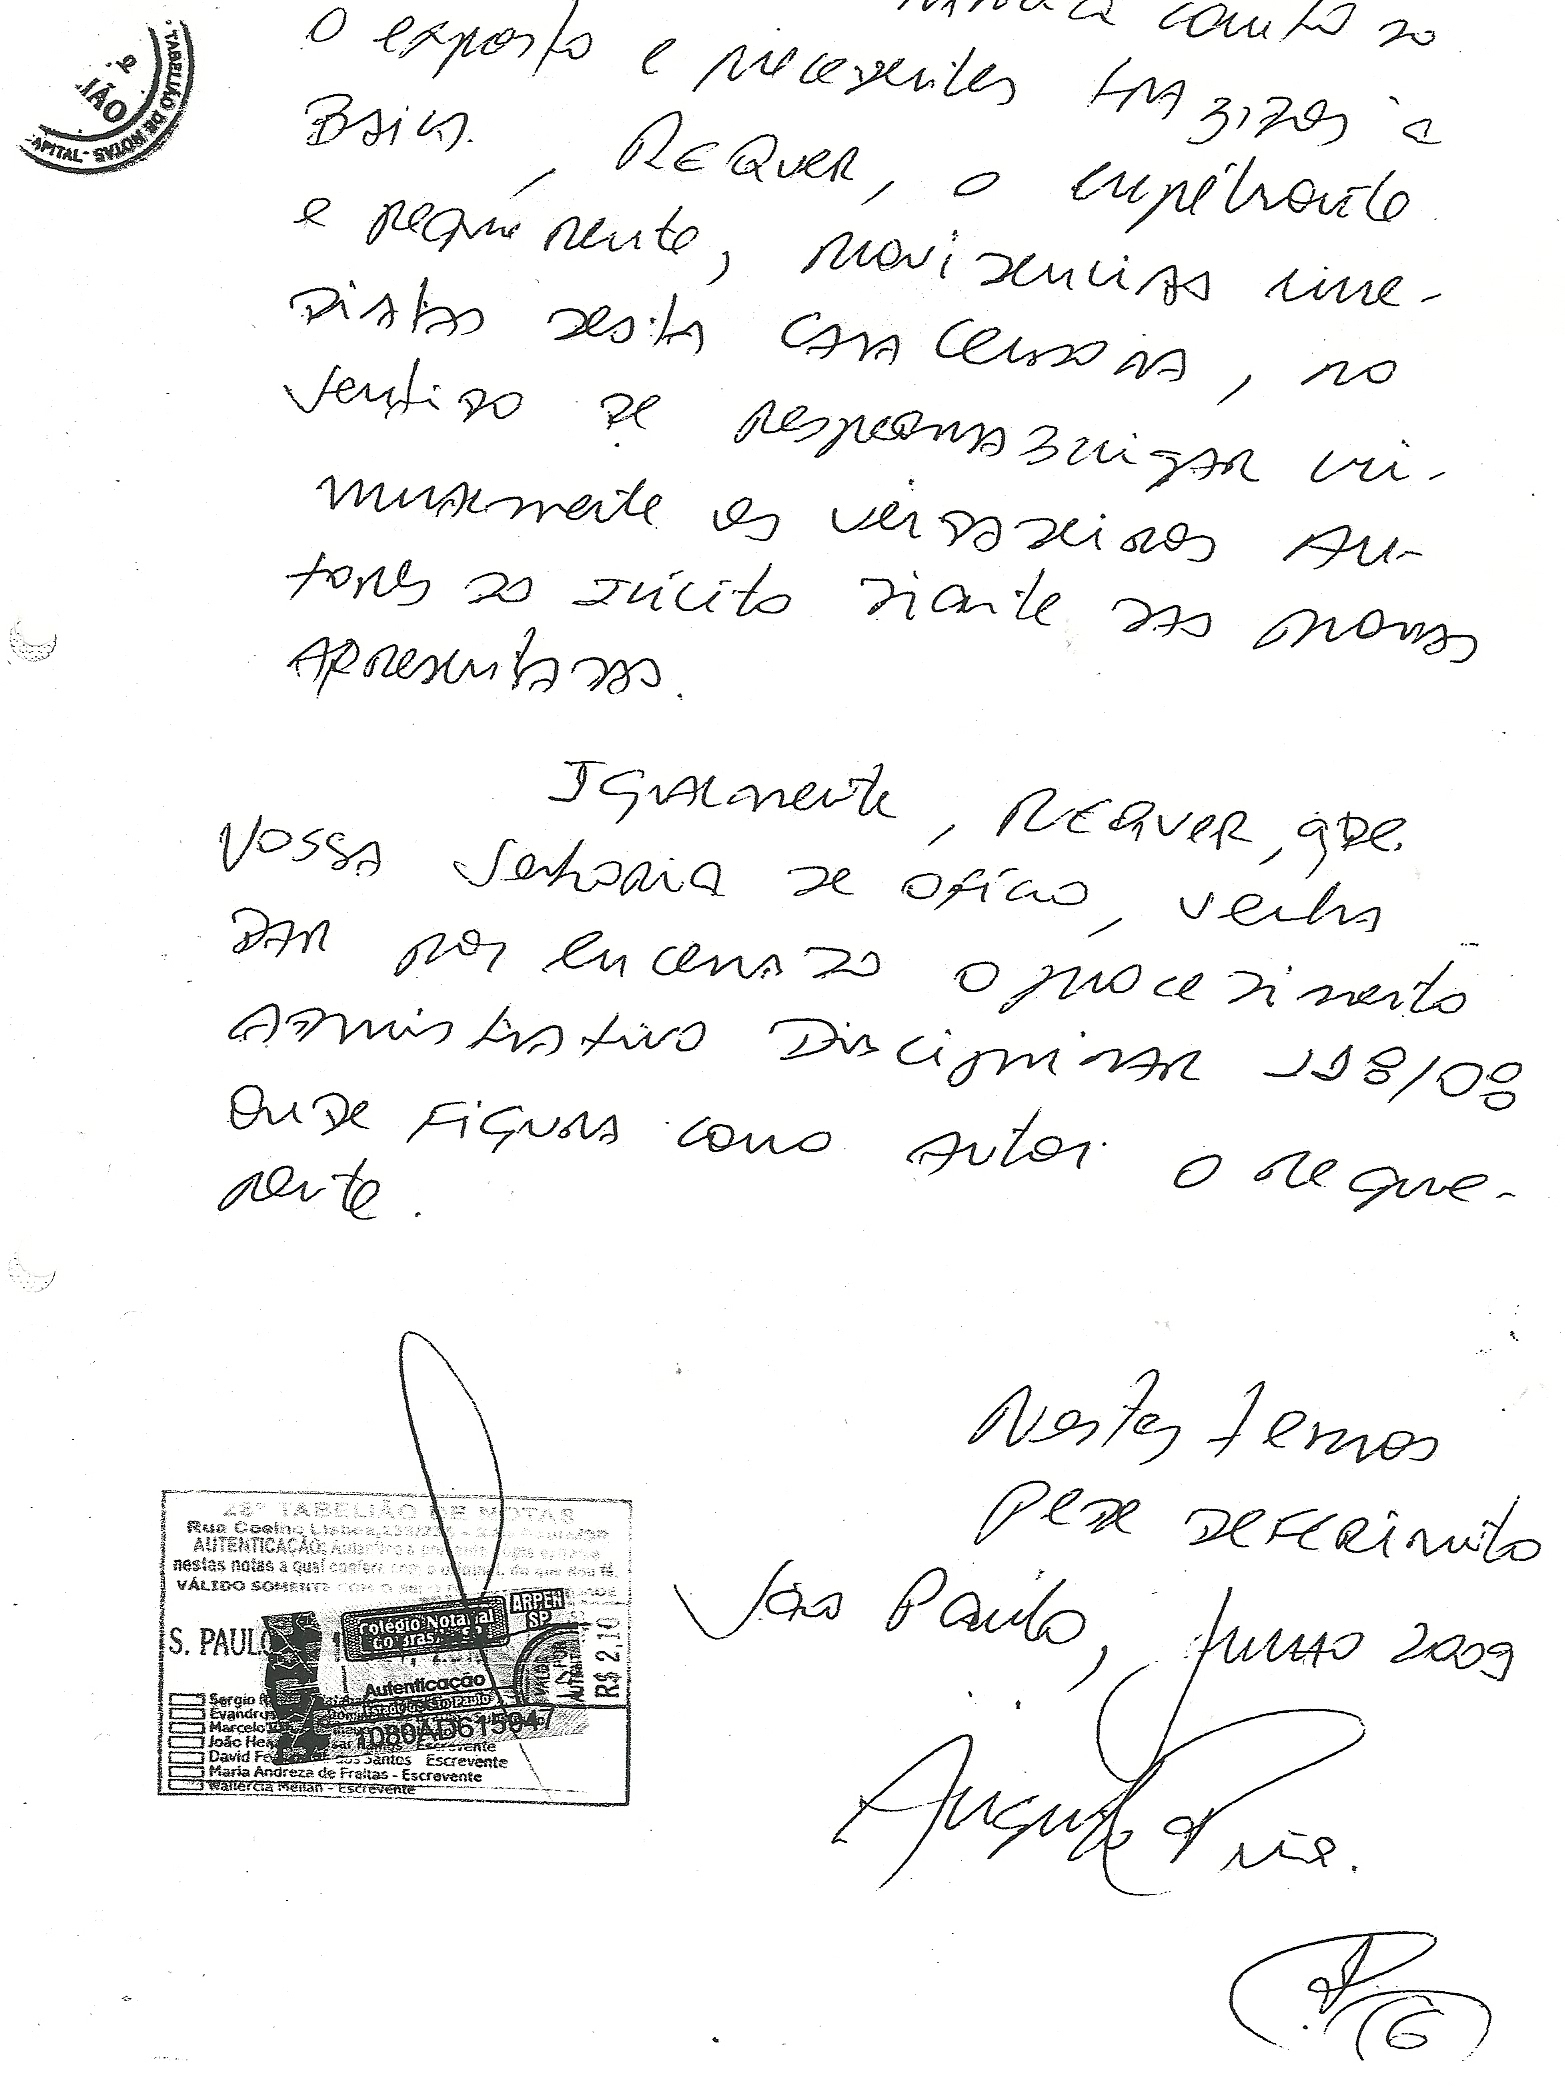 conta do
O exposto e precedentes trazidos a
Baila, REQUER, o impetrante
e requerente, providencias ime-
diatas desta casa censora, no
sentido de responsabilizar cri-
minalmente os verdadeiros au-
tores do ilícito diante das provas
apresentadas.
Igualmente, REQUER, que
Vossa Senhoria de ofício, venha
dar por encerrado o procedimento
administrativo Disciplinar 118/08
onde figura como autor o reque-
rente.
Nestes termos
Pede deferimto
São Paulo, Junho 2009
TABELIÃO DE NOTAS
APITAL-
28º TABELIÃO DE NOTAS
Rua Coelho Lisboa,
AUTENTICAÇÃO:
nestas notas a qual confere
VÁLIDO SOMENTE COM O
S. PAULO
Colégio Notarial
ARPEN
SP
Autenticação
Estado de São Paulo
1080AD615047
R$ 2,10
Sergio
Evandro
Marcelo
João
David dos Santos Escrevente
Maria Andreza de Freitas - Escrevente
Escrevente